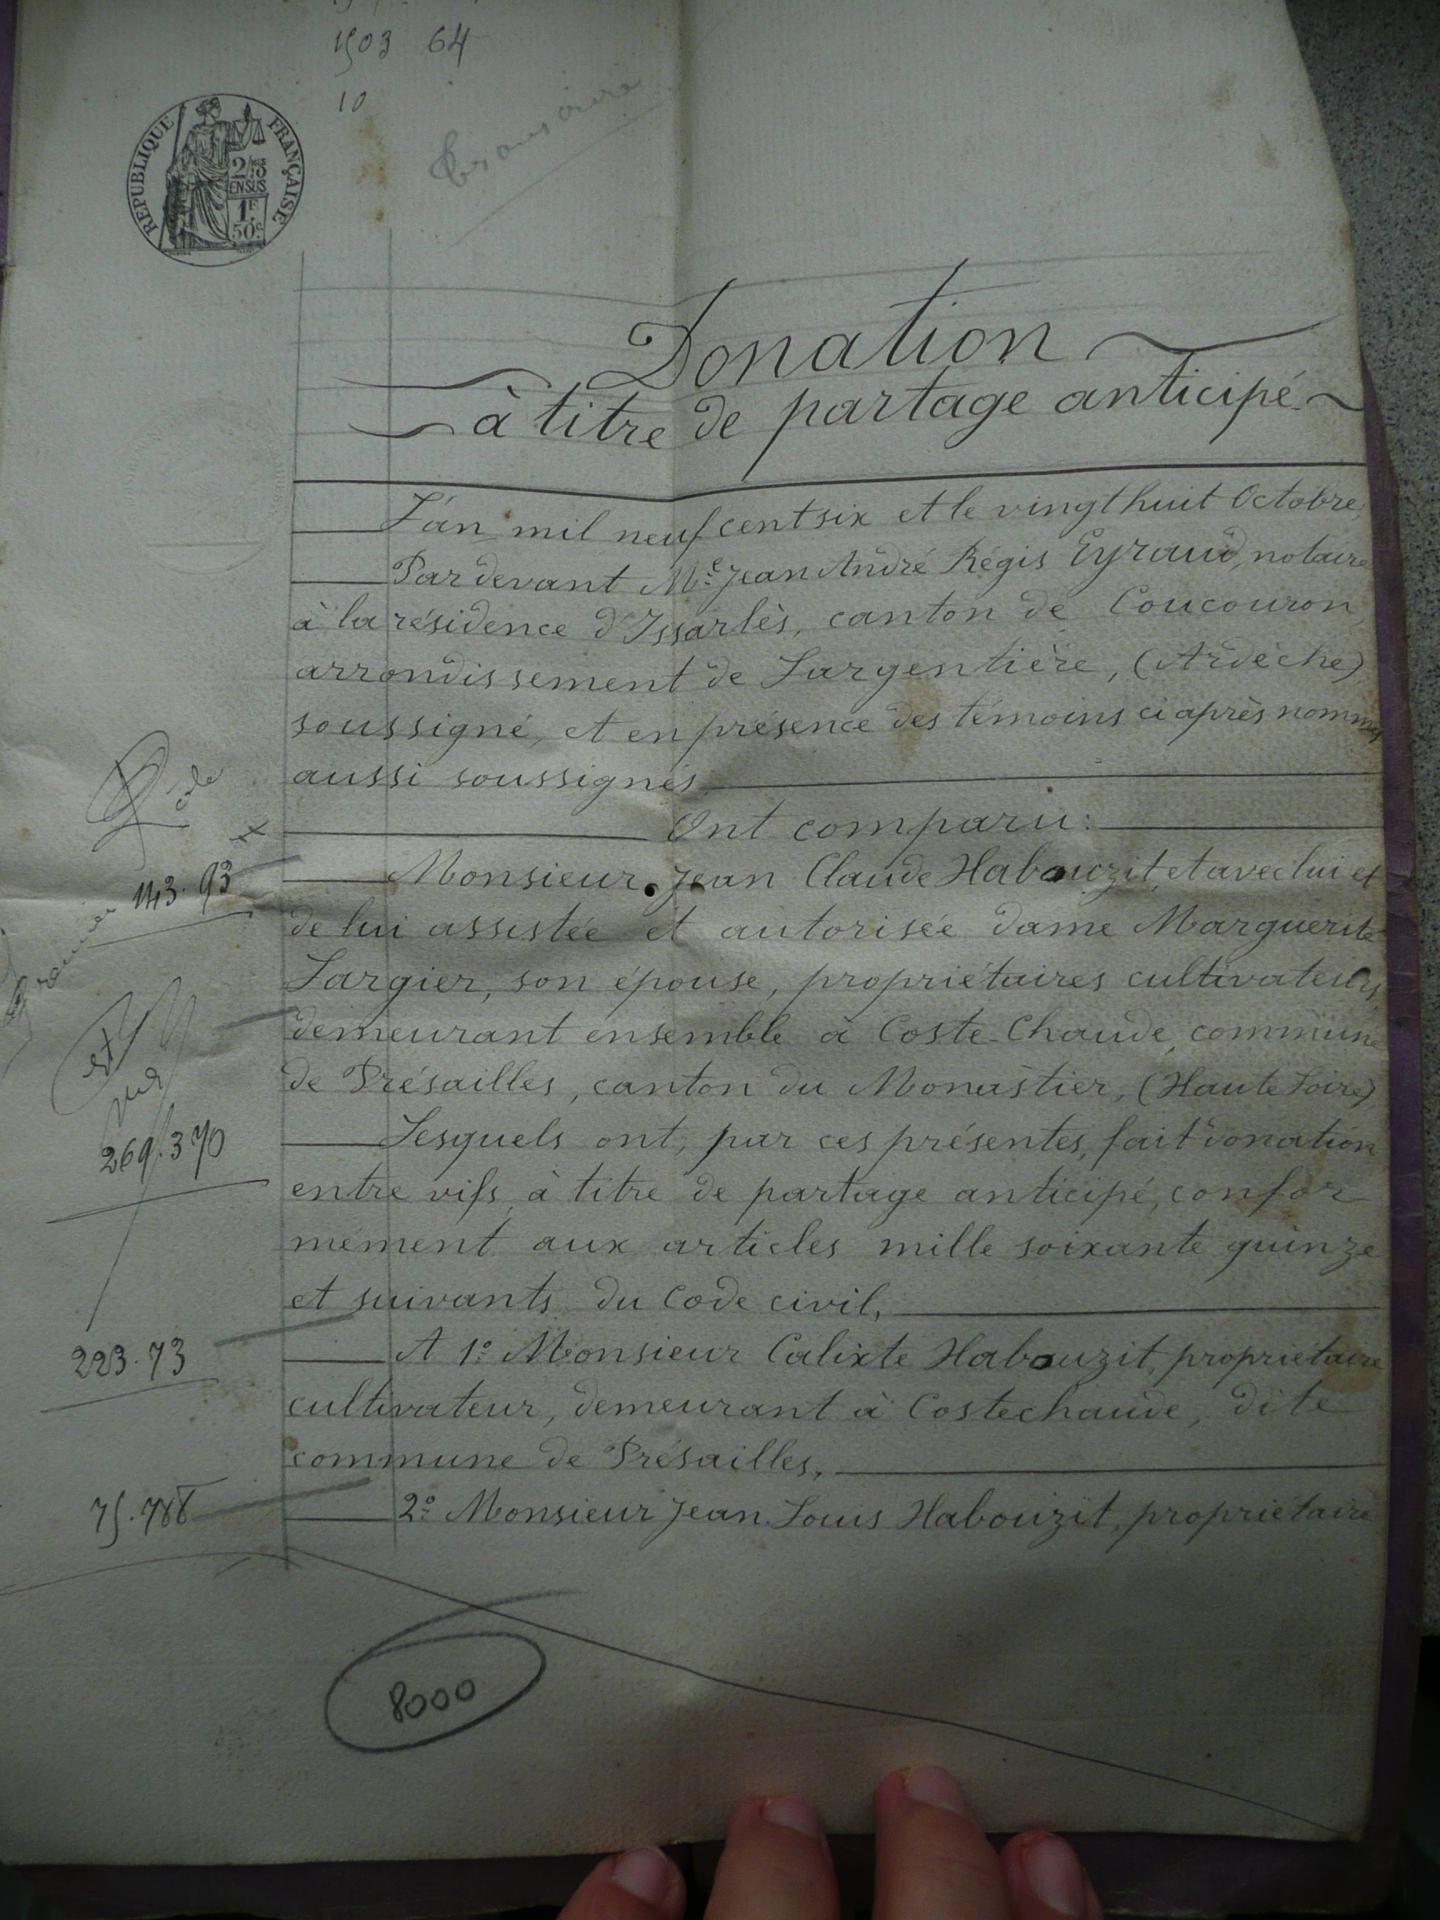 1503 64
10
RÉPUBLIQUE FRANÇAISE
2/10
EN SUS
1F
50c
Donation
à titre de partage anticipé
L'an mil neuf cent six et le vingt huit Octobre,
Par devant Me Jean André Régis Eyraud, notaire
à la résidence d'Issarlès, canton de Coucouron,
arrondissement de Largentière, (Ardèche)
soussigné, et en présence des témoins ci après nommés
aussi soussignés
Ont comparu:
143.93
Monsieur Jean Claude Habouzit, et avec lui et
de lui assistée et autorisée dame Marguerite
Largier, son épouse, propriétaires cultivateurs,
demeurant ensemble à Coste-Chaude, commune
de Présailles, canton du Monastier, (Haute Loire)
269.370
Lesquels ont, par ces présentes, fait donation
entre vifs, à titre de partage anticipé, confor
mément aux articles mille soixante quinze
et suivants du Code civil,
223.73
A 1o Monsieur Calixte Habouzit, propriétaire
cultivateur, demeurant à Costechaude, dite
commune de Présailles,
75.788
2o Monsieur Jean Louis Habouzit, propriétaire
8000